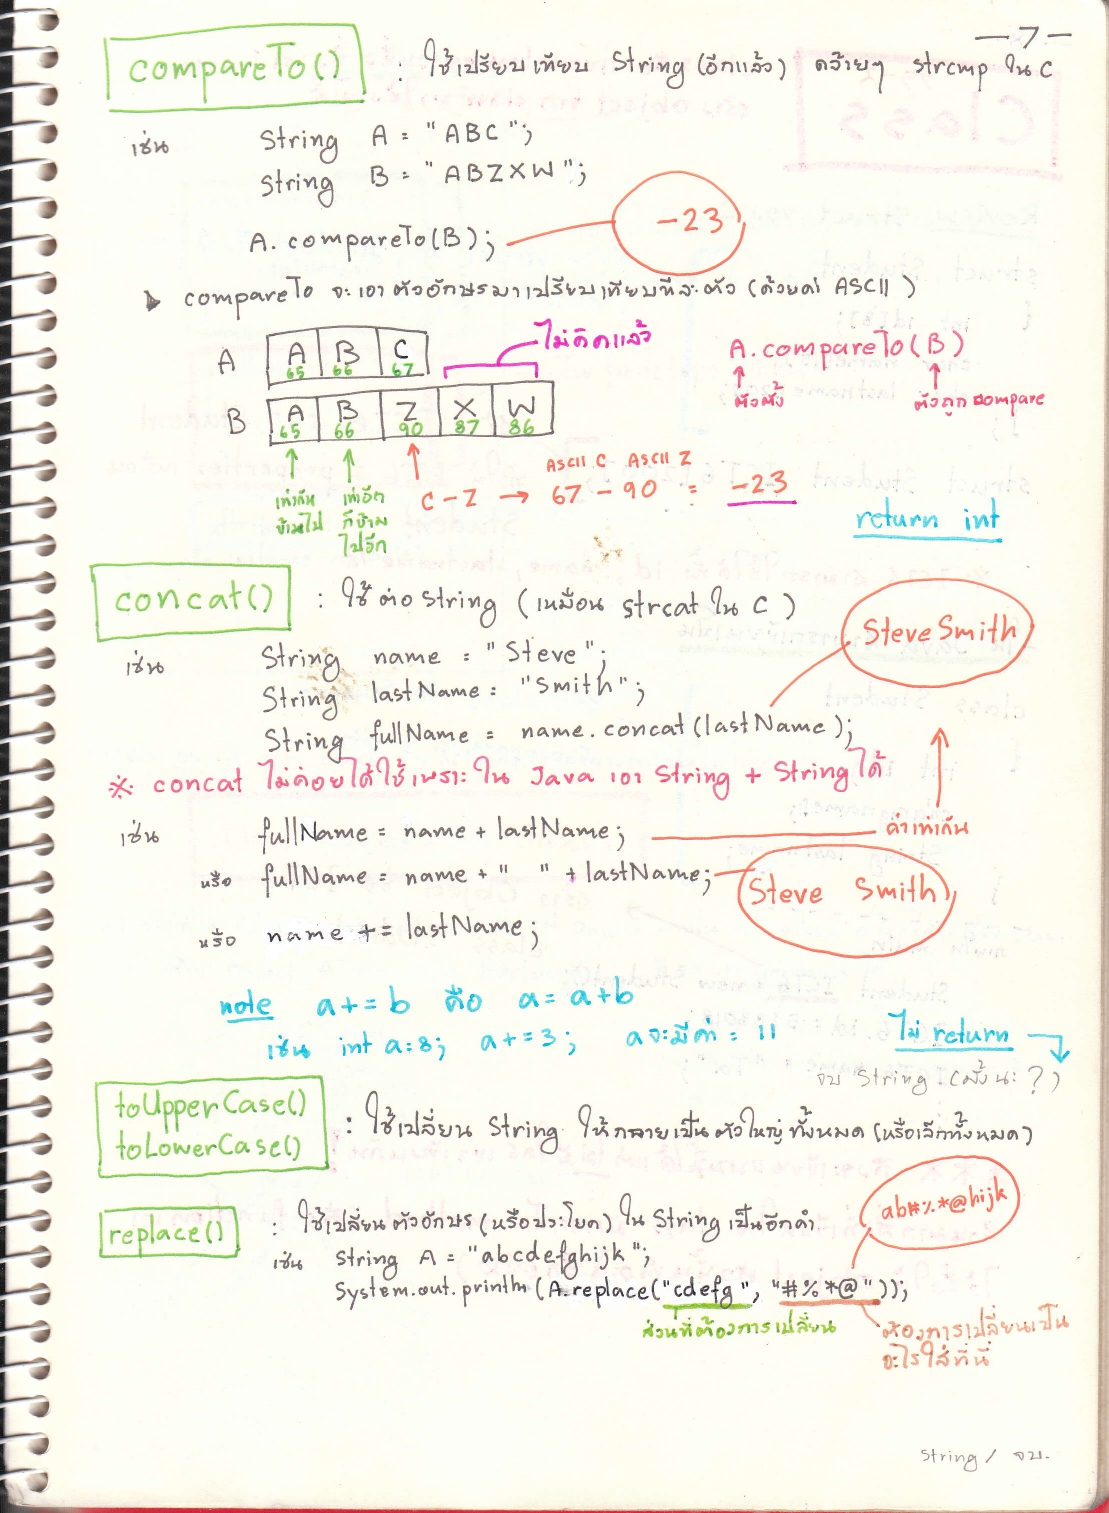 - 7 -
compareTo() : ใช้เปรียบเทียบ String (อีกแล้ว) คล้ายๆ strcmp ใน C
เช่น String A = "ABC";
String B = "ABZXW";
A.compareTo(B); -23
compareTo จะเอาตัวอักษรมาเปรียบเทียบทีละตัว (ด้วยค่า ASCII)
ไม่คิดแล้ว
A A B C
65 66 67
A.compareTo(B)
ตัวตั้ง ตัวถูก compare
B A B Z X W
65 66 90 87 86
ASCII C ASCII Z
C - Z → 67 - 90 = -23
เท่ากัน ข้ามไป
เท่าอีก ก็ข้าม ไปอีก
return int
concat() : ใช้ต่อ String (เหมือน strcat ใน C)
SteveSmith
เช่น String name = "Steve";
String lastName = "Smith";
String fullName = name.concat(lastName);
※ concat ไม่ค่อยได้ใช้เพราะใน Java เอา String + String ได้
เช่น fullName = name + lastName; ค่าเท่ากัน
หรือ fullName = name + " " + lastName; Steve Smith
หรือ name += lastName;
note a += b คือ a = a+b
เช่น int a=8; a+=3; a จะมีค่า = 11
ไม่ return
จบ String (มั้งนะ?)
toUpperCase()
toLowerCase() : ใช้เปลี่ยน String ให้กลายเป็นตัวใหญ่ทั้งหมด (หรือเล็กทั้งหมด)
ab#%*@hijk
replace() : ใช้เปลี่ยนตัวอักษร (หรือประโยค) ใน String เป็นอีกคำ
เช่น String A = "abcdefghijk";
System.out.println(A.replace("cdefg", "#%*@"));
ส่วนที่ต้องการเปลี่ยน
ต้องการเปลี่ยนเป็น
อะไรใส่ที่นี่
String / จบ.